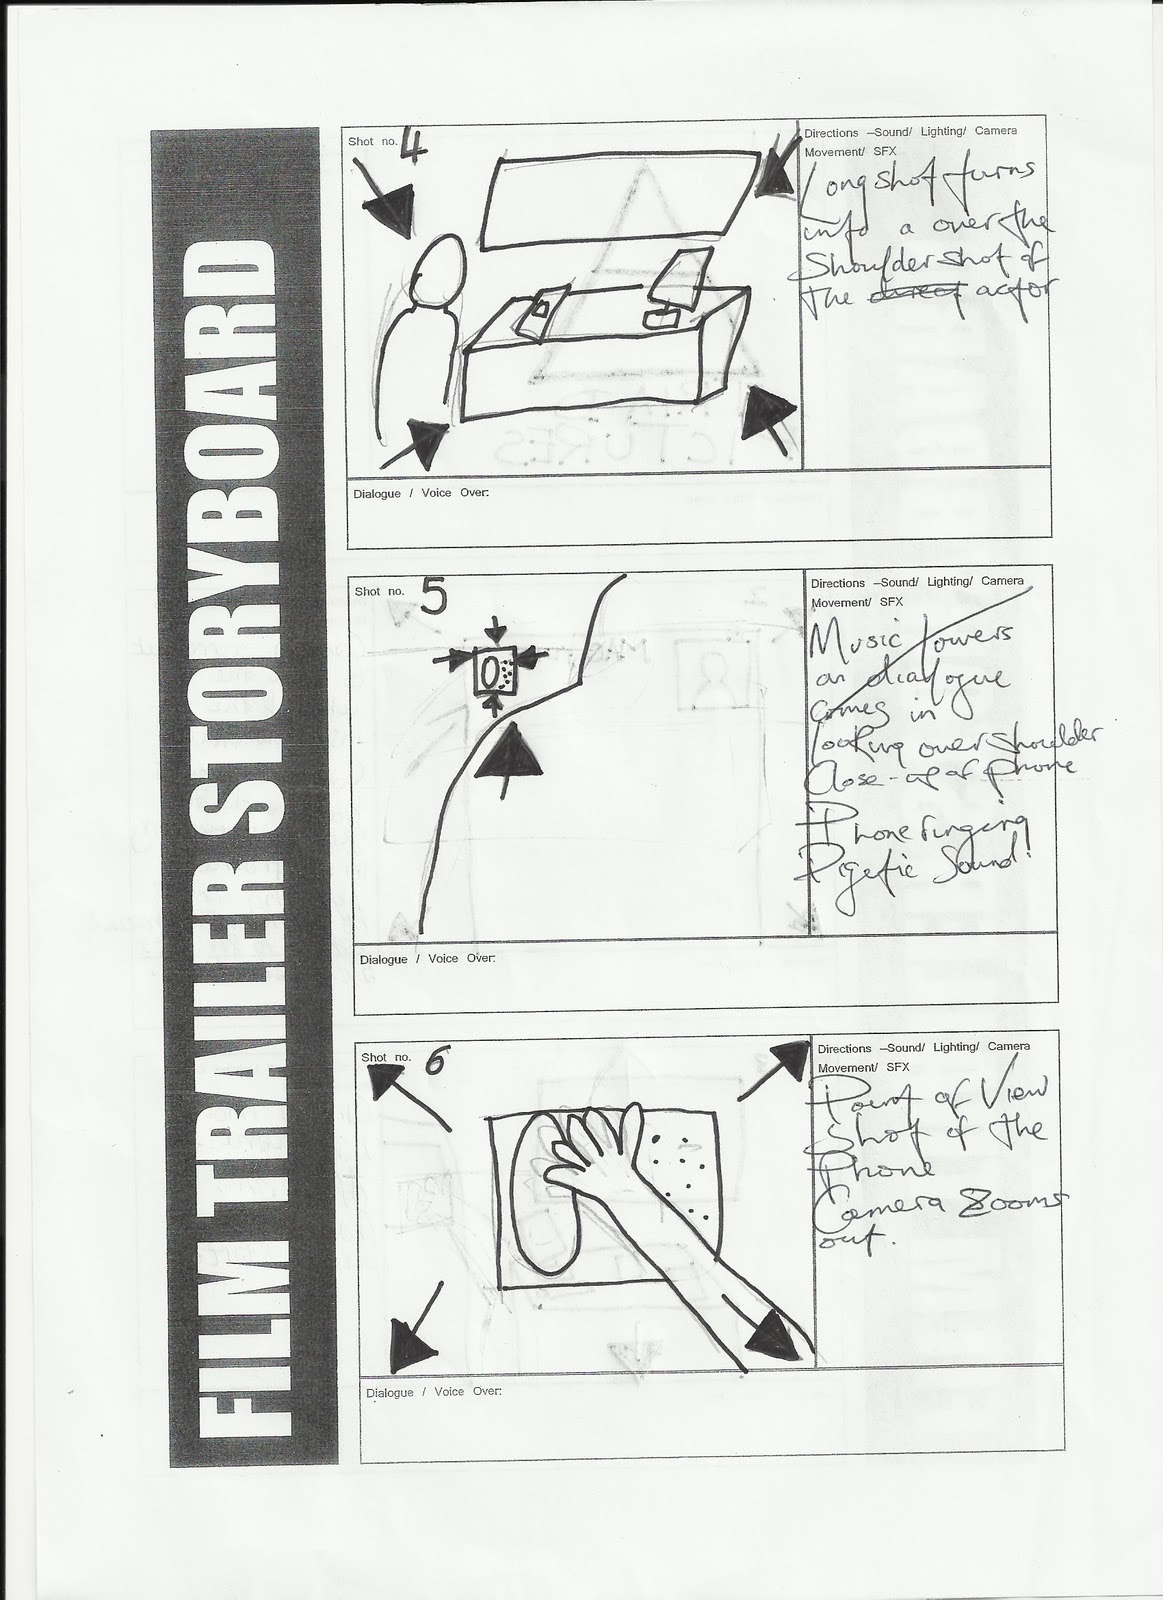 FILM TRAILER STORYBOARD
Shot no. 4
Directions –Sound/ Lighting/ Camera
Movement/ SFX
Long shot turns
into a over the
Shoulder shot of
the direct actor
Dialogue / Voice Over:
Shot no. 5
Directions –Sound/ Lighting/ Camera
Movement/ SFX
Music lowers
as dialogue
comes in
Looking over shoulder
Close-up of phone
Phone ringing
Digetic Sound!
Dialogue / Voice Over:
Shot no. 6
Directions –Sound/ Lighting/ Camera
Movement/ SFX
Point of View
Shot of the
Phone
Camera Zooms
out.
Dialogue / Voice Over: